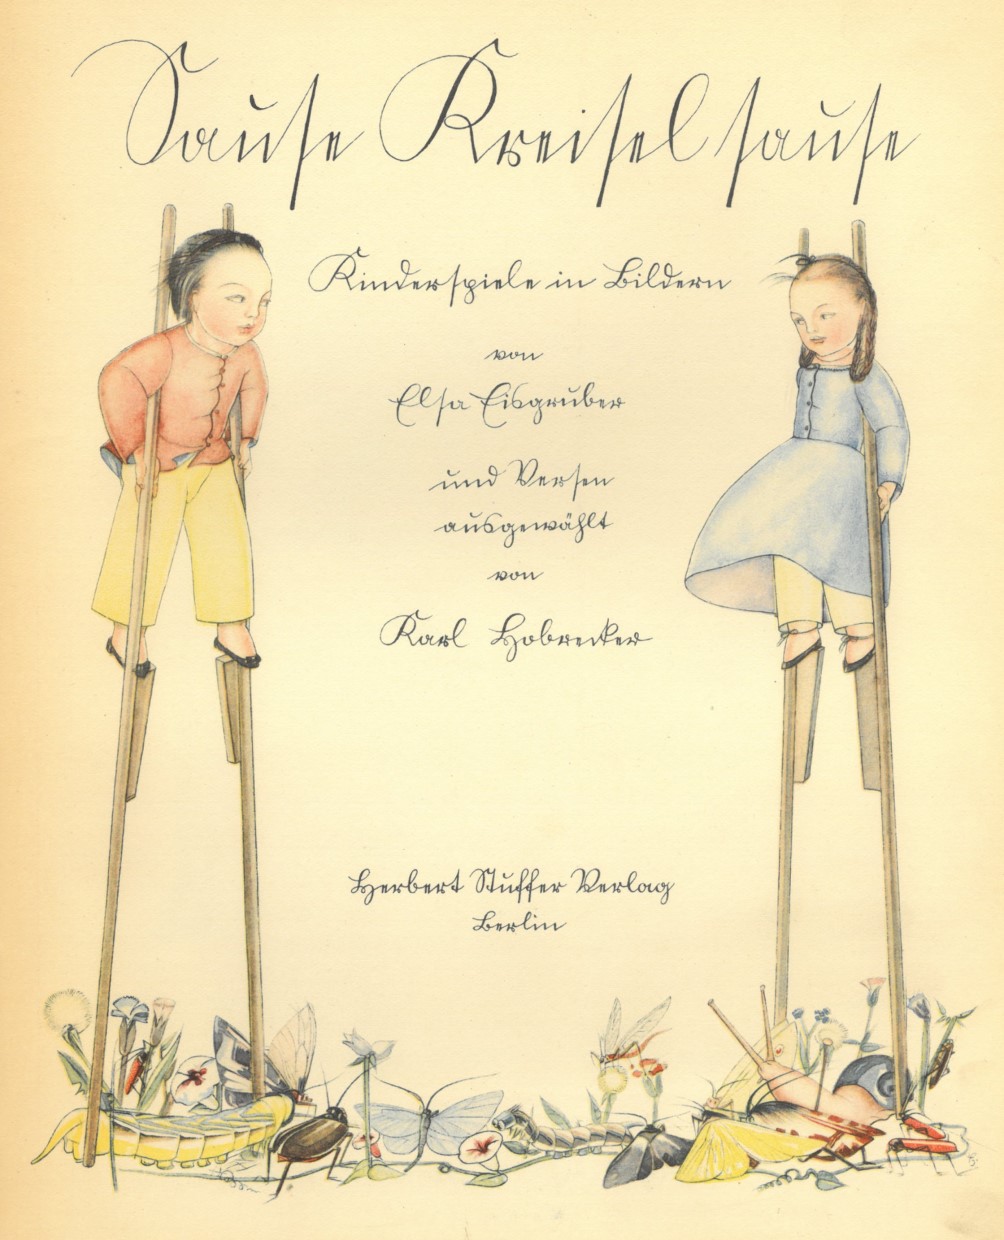 Sause Kreisel sause
Kinderspiele in Bildern
von
Elsa Eisgruber
und Versen
ausgewählt
von
Karl Hobrecker
Herbert Stuffer Verlag
Berlin